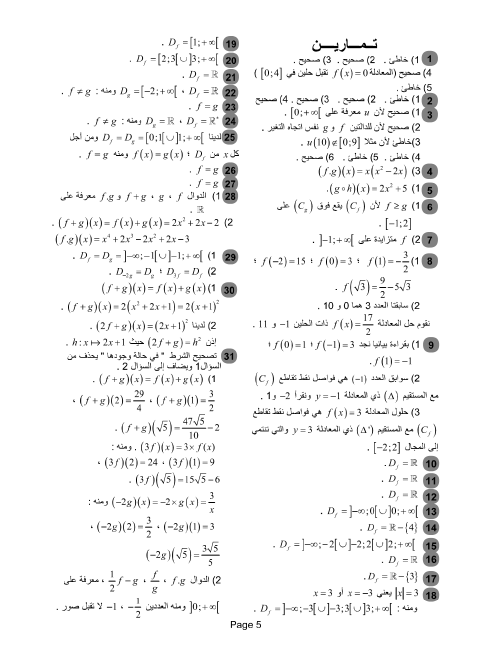 تـمـــاريـــن
1 1) خاطئ . 2) صحيح . 3) صحيح .
4) صحيح (المعادلة f(x)=0 تقبل حلين في [0;4] )
5) خاطئ .
2 1) خاطئ . 2) صحيح . 3) صحيح . 4) صحيح
3 1) صحيح لأن u معرفة على [0;+∞[ .
2) صحيح لأن للدالتين f و g نفس اتجاه التغير .
3) خاطئ لأن مثلا u(10)∉[0;9] .
4) خاطئ . 5) خاطئ . 6) صحيح .
4 3) (f.g)(x)=x(x²−2x)
5 1) (g∘h)(x)=2x²+5
6 1) f≥g لأن (C_f) يقع فوق (C_g) على
[−1;2] .
7 2) f متزايدة على ]−1;+∞[ .
8 1) f(1)=−3/2 ؛ f(0)=3 ؛ f(−2)=15 ؛
f(√3)=9/2−5√3 .
2) سابقتا العدد 3 هما 0 و 10 .
نقوم حل المعادلة f(x)=17/2 ذات الحلين −1 و 11 .
9 1) بقراءة بيانيا نجد f(−1)=3 ؛ f(0)=1 ؛
f(1)=−1 .
2) سوابق العدد (−1) هي فواصل نقط تقاطع (C_f)
مع المستقيم (Δ) ذي المعادلة y=−1 ونقرأ −2 و 1 .
3) حلول المعادلة f(x)=3 هي فواصل نقط تقاطع
(C_f) مع المستقيم (Δ') ذي المعادلة y=3 والتي تنتمي
إلى المجال [−2;2] .
10 D_f=ℝ .
11 D_f=ℝ .
12 D_f=ℝ .
13 D_f=]−∞;0[∪]0;+∞[ .
14 D_f=ℝ−{4}
15 D_f=]−∞;−2[∪]−2;2[∪]2;+∞[ .
16 D_f=ℝ .
17 D_f=ℝ−{3} .
18 |x|=3 يعني x=−3 أو x=3
ومنه : D_f=]−∞;−3[∪]−3;3[∪]3;+∞[ .
19 D_f=[1;+∞[ .
20 D_f=[2;3[∪]3;+∞[ .
21 D_f=ℝ .
22 D_f=ℝ ، D_g=[−2;+∞[ ومنه : f≠g .
23 f=g .
24 D_f=ℝ* ، D_g=ℝ ومنه : f≠g .
25 لدينا D_f=D_g=[0;1[∪]1;+∞[ ومن أجل
كل x من D_f ؛ f(x)=g(x) ومنه f=g .
26 f=g .
27 f=g .
28 1) الدوال f ، g ، f+g و f.g معرفة على
ℝ .
2) (f+g)(x)=f(x)+g(x)=2x²+2x−2 .
(f.g)(x)=x⁴+2x³−2x²+2x−3
29 1) D_f=D_g=]−∞;−1[∪]−1;+∞[ .
2) D_3f=D_f ؛ D_−2g=D_g .
30 1) (f+g)(x)=f(x)+g(x)
(f+g)(x)=2(x²+2x+1)=2(x+1)² .
2) لدينا (2f+g)(x)=(2x+1)² .
إذن (2f+g)=h² حيث h:x↦2x+1 .
31 تصحيح الشرط " في حالة وجودها " يحذف من
السؤال1 ويضاف إلى السؤال 2 .
1) (f+g)(x)=f(x)+g(x) .
(f+g)(1)=3/2 ، (f+g)(2)=29/4 ،
(f+g)(√5)=47√5/10−2 .
(3f)(x)=3×f(x) . ومنه :
(3f)(1)=9 ، (3f)(2)=24 ،
(3f)(√5)=15√5−6 .
(−2g)(x)=−2×g(x)=3/x ومنه :
(−2g)(1)=3 ، (−2g)(2)=3/2 ،
(−2g)(√5)=3√5/5
2) الدوال f.g ، f/g ، 1/2 f−g ، معرفة على
]0;+∞[ ومنه العددين −1/2 ، −1 لا تقبل صور .
Page 5